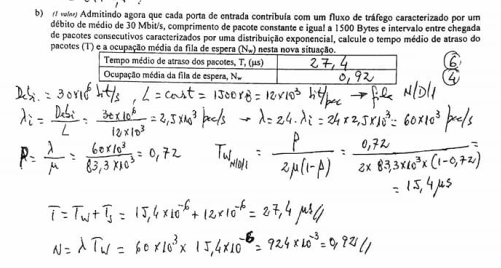 b) (1 valor) Admitindo agora que cada porta de entrada contribuía com um fluxo de tráfego caracterizado por um
débito médio de 30 Mbit/s, comprimento de pacote constante e igual a 1500 Bytes e intervalo entre chegada
de pacotes consecutivos caracterizados por uma distribuição exponencial, calcule o tempo médio de atraso do
pacotes (T) e a ocupação média da fila de espera (Nw) nesta nova situação.
Tempo médio de atraso dos pacotes, T, (μs) 27,4 6
Ocupação média da fila de espera, Nw 0,92 4
Debi. = 30×10⁶ bit/s, L = cast = 1500×8 = 12×10³ bit/pac → fila M/D/1
λi = Debi/L = 30×10⁶/12×10³ = 2,5×10³ pac/s → λ = 24·λi = 24×2,5×10³ = 60×10³ pac/s
ρ = λ/μ = 60×10³/83,3×10³ = 0,72 Tw M/D/1 = ρ/2μ(1-ρ) = 0,72/2×83,3×10³×(1-0,72) =
= 15,4 μs
T = Tw + Ts = 15,4×10⁻⁶ + 12×10⁻⁶ = 27,4 μs //
N = λ Tw = 60×10³ × 15,4×10⁻⁶ = 924×10⁻³ = 0,92 //